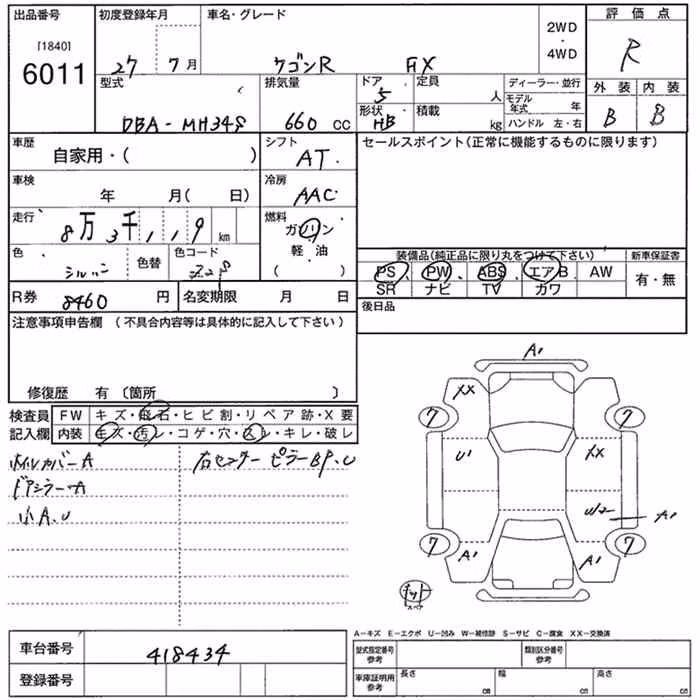 出品番号 初度登録年月 車名・グレード 2WD・4WD 評価点
[1840]
6011 27年 7月 ワゴンR FX R
型式 排気量 ドア 5 定員 人 ディーラー・並行 外装 内装
DBA-MH34S 660cc 形状 HB 積載 kg モデル年式 年 B B
ハンドル 左・右
車歴 自家用・( ) シフト AT セールスポイント(正常に機能するものに限ります)
車検 年 月( 日) 冷房 AAC
走行 8万3千1,19km 燃料 ガソリン
軽・油
( )
色 色替 色コード
装備品(純正品に限り丸をつけて下さい) 新車保証書
PS PW ABS エアB AW 有・無
SR ナビ TV カワ
R券 8460円 名変期限 月 日 後日品
注意事項申告欄 (不具合内容等は具体的に記入して下さい)
修復歴 有〔箇所 〕
検査員 FW キズ・飛石・ヒビ割・リペア跡・X要
記入欄 内装 キズ・汚レ・コゲ・穴・スレ・キレ・破レ
ホイルカバーA 右センターピラーBP.U
ドアミラーA
小A.U
A1
XX
7 7
U1 XX
U2 A1
7 A1 A1 7
スペア
A-キズ E-エクボ U-凹み W-補修跡 S-サビ C-腐食 XX-交換済
車台番号 418434 型式指定番号 参考 類別区分番号 参考
登録番号 車庫証明用 参考 長さ cm 幅 cm 高さ cm